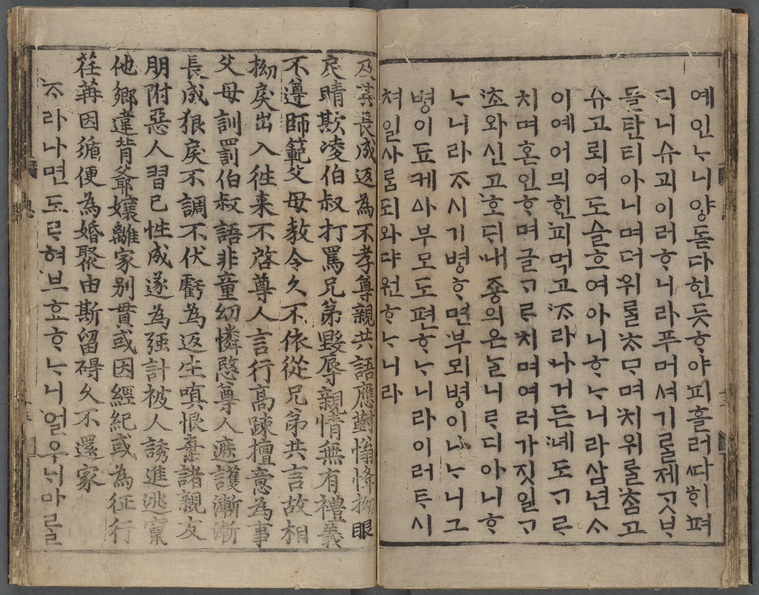 예인ᄂᆞ니양돋다힌ᄃᆞᆺᄒᆞ야피흘러ᄯᅡ히펴
디니슈괴이러ᄒᆞ니라푸머셔기ᄅᆞᆯ제ᄀᆞᆺ브
ᄃᆞᆯ탄티아니며더위ᄅᆞᆯᄎᆞᄆᆞ며치위ᄅᆞᆯᄎᆞᆷ고
슈고뢰여도슬흐여아니ᄒᆞᄂᆞ니라삼년ᄉᆞ
이예어믜ᄒᆡᆫ피먹고ᄌᆞ라나거든녜도ᄀᆞᄅᆞ
치며혼인ᄒᆞ며글ᄀᆞᄅᆞ치며여러가짓일ᄀᆞ
초와신고호ᄃᆡ내죵의은늘니ᄅᆞ디아니ᄒᆞ
ᄂᆞ니라ᄌᆞ시기병ᄒᆞ면부뫼병이나ᄂᆞ니그
병이됴케야부모도편ᄒᆞᄂᆞ니라이러트시
쳐일사ᄅᆞᆷ되와댜원ᄒᆞᄂᆞ니라
及其長成返為不孝尊親共語應對慞惶拗眼
戾睛欺凌伯叔打罵兄弟毀辱親情無有禮義
不遵師範父母教令久不依從兄弟共言故相
拗戾出入徃来不啓尊人言行高踈擅意為事
父母訓罰伯叔語非童幼憐愍尊人遮護漸漸
長成狠戾不調不伏虧為返生嗔恨棄諸親友
朋附惡人習已性成遂為強計被人誘進逃竄
他鄉違背爺孃離家别貫或因經紀或為征行
荏苒因循便為婚聚由斯留碍久不還家
ᄌᆞ라나면도ᄅᆞ혀브효ᄒᆞᄂᆞ니얼우니마ᄅᆞᆯ